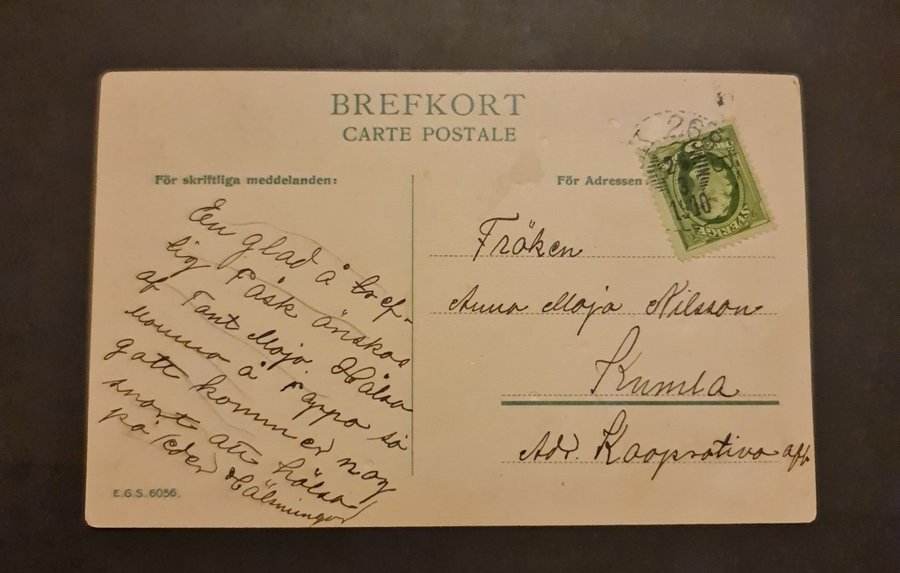 BREFKORT
CARTE POSTALE
För skriftliga meddelanden:
För Adressen:
En glad å tref-
lig Påsk önskas
af Tant Maja. Hälsa
Mamma å Pappa så
gatt kommer nog
snart att hälsa
på Eder Hälsningar
Fröken
Anna Maja Nilsson
Kumla
Adr. Kooprativa aff.
E.G.S. 6056.
SVERIGE